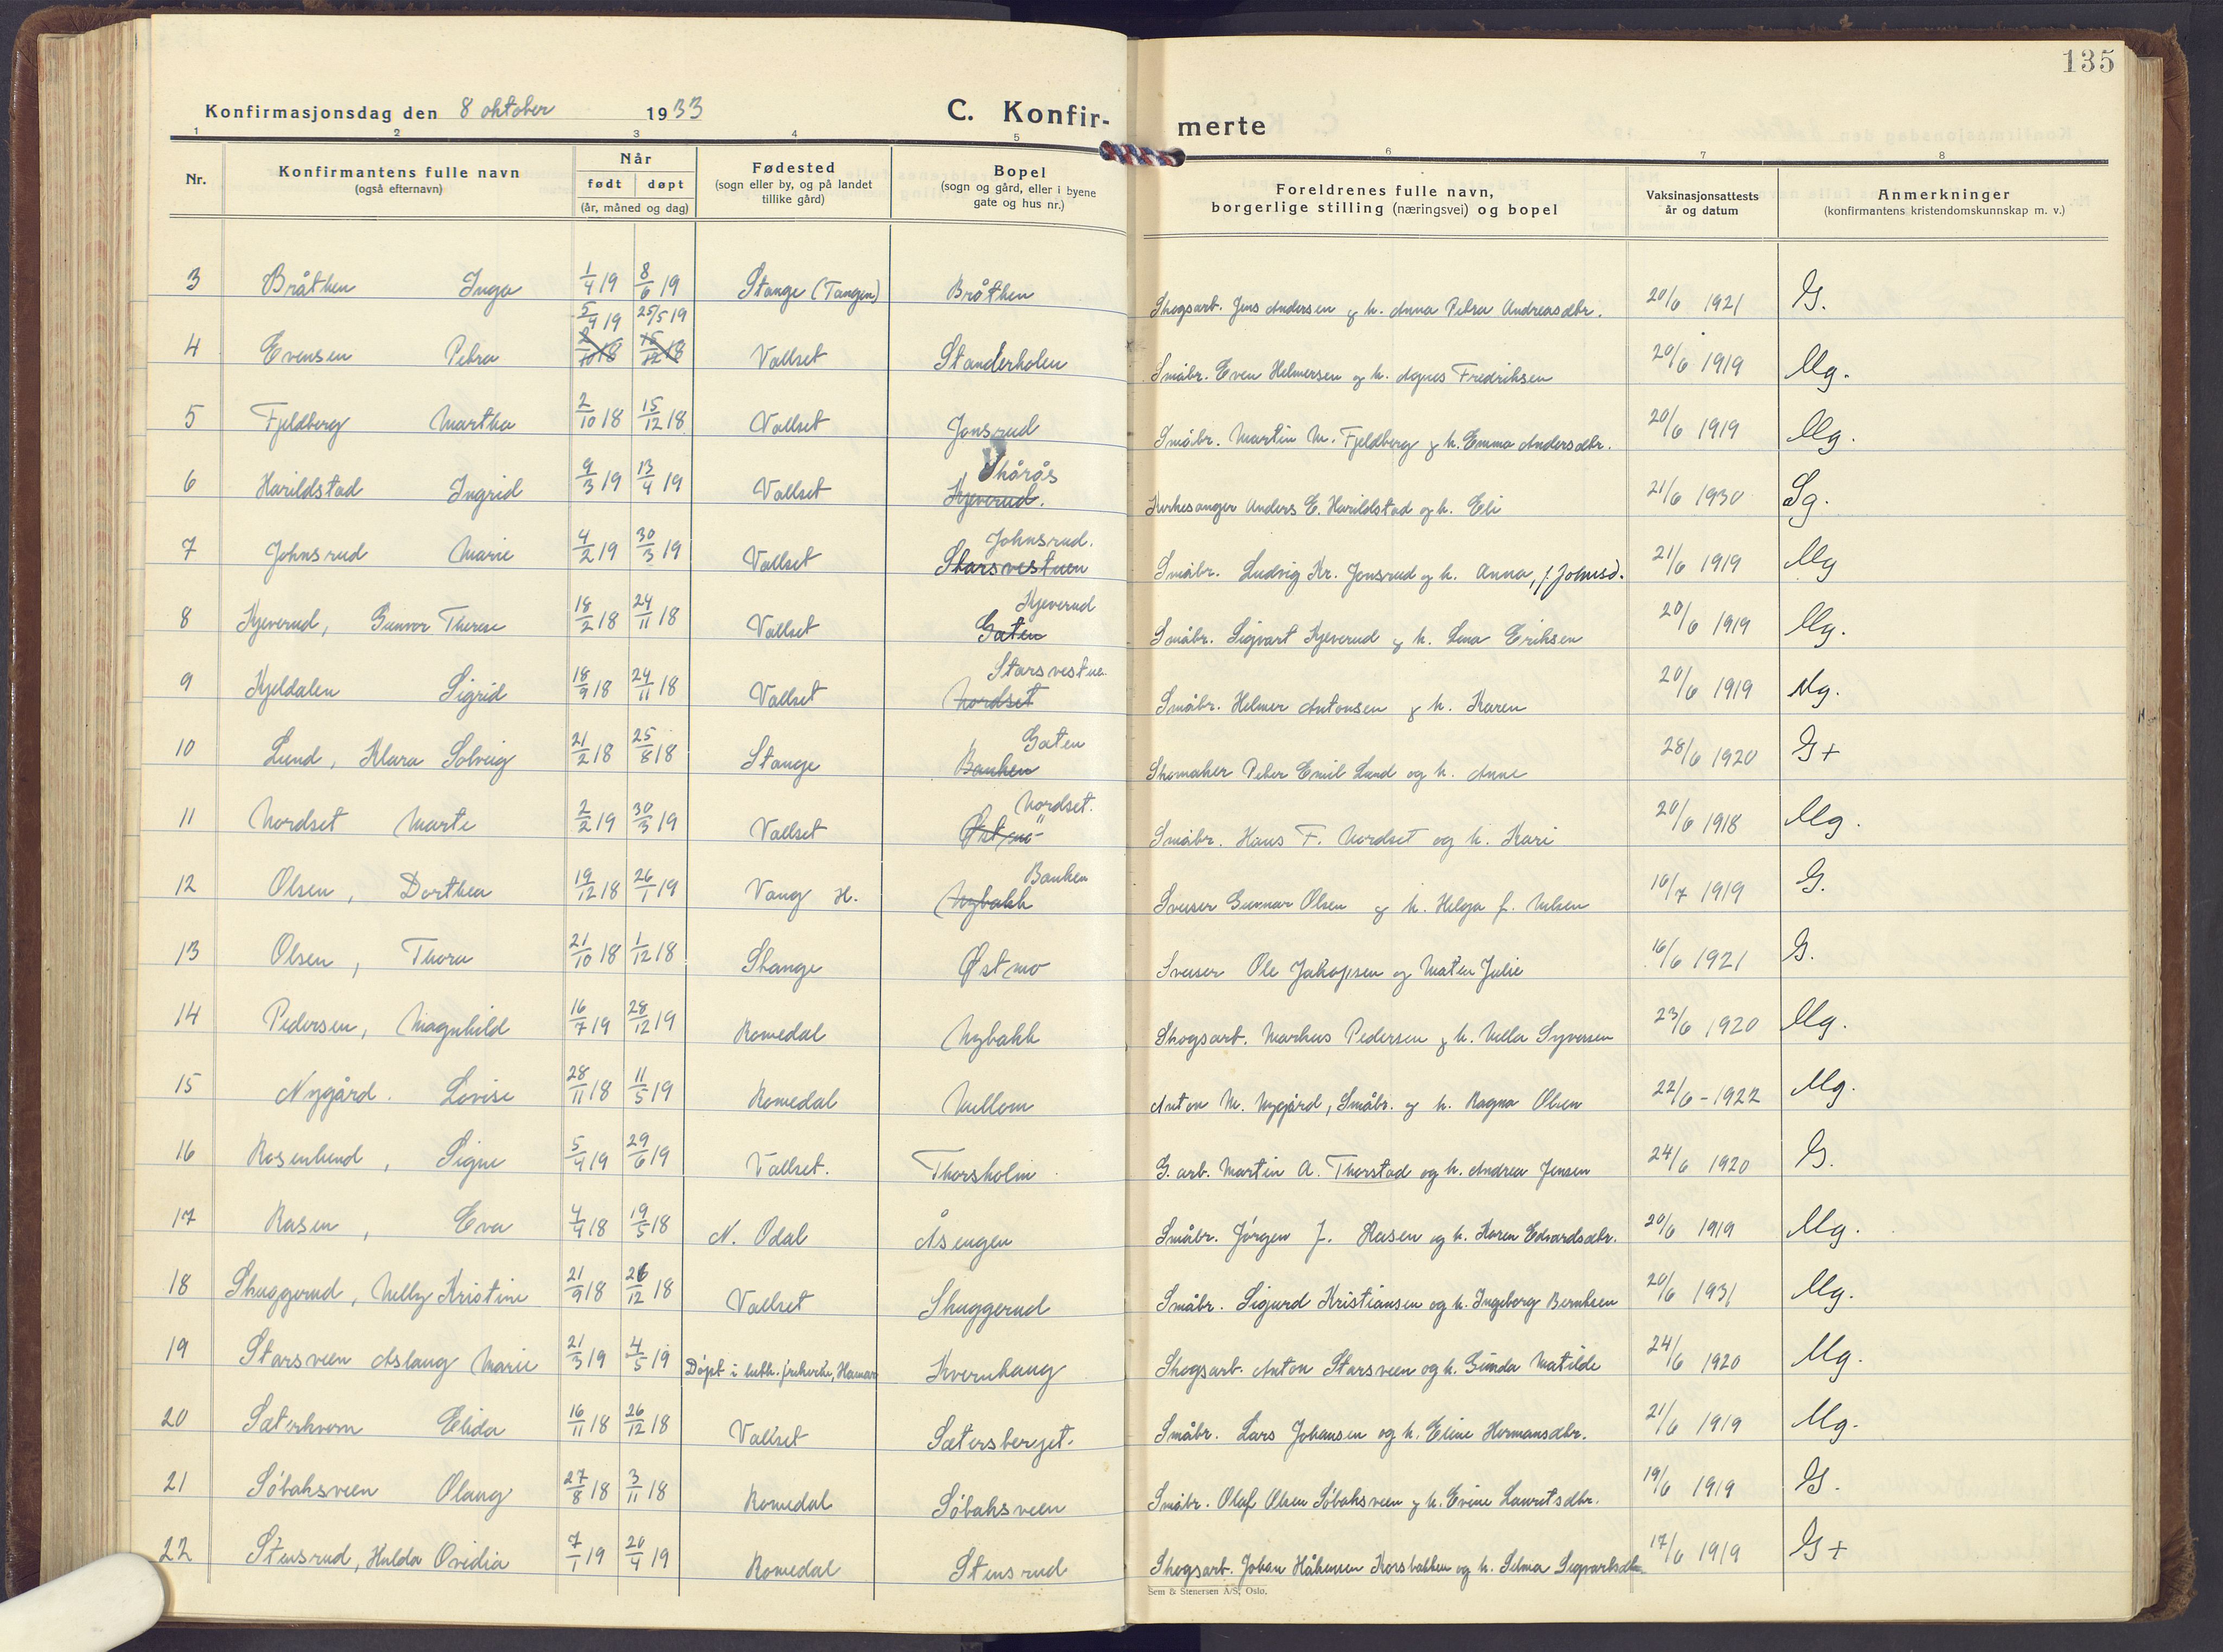 135
Konfirmasjonsdag den 8 oktober 1933 C. Konfir- merte
1 2 3 4 5 6 7 8
Nr. Konfirmantens fulle navn (også efternavn) Når født døpt (år, måned og dag) Fødested (sogn eller by, og på landet tillike gård) Bopel (sogn og gård, eller i byene gate og hus nr.) Foreldrenes fulle navn, borgerlige stilling (næringsvei) og bopel Vaksinasjonsattests år og datum Anmerkninger (konfirmantens kristendomskunnskap m. v.)
3 Bråthen Inga 1/4 19 8/6 19 Stange (Tangen) Bråthen Skogsart. Jens Andersen & h. Anna Petra Andreasdtr. 20/6 1921 G.
5/4 19 25/5 19
4 Evensen Petra 2/10 18 15/12 18 Vallset Standerholen Småbr. Even Helmersen og h. Agnes Fredriksen 20/6 1919 Mg.
5 Fjeldberg Martha 2/10 18 15/12 18 Vallset Jonsrud Småbr. Martin M. Fjeldberg & h. Emma Andersdtr. 20/6 1919 Mg.
Skårås
6 Harildstad Ingrid 9/3 19 13/4 19 Vallset Kjeverud. Kirkesanger Anders E. Harildstad og h. Eli 21/6 1930 Sg.
Johnsrud.
7 Johnsrud Marie 4/2 19 30/3 19 Vallset Starsvestuen Småbr. Ludvig Kr. Jonsrud og h. Anna, f. Johnsd. 21/6 1919 Mg
Kjeverud
8 Kjeverud, Gunvor Therese 18/2 18 24/11 18 Vallset Gaten Småbr. Sigvart Kjeverud & h. Lina Eriksen 20/6 1919 Mg.
Starsvestue.
9 Kjeldalen Sigrid 18/9 18 24/11 18 Vallset Nordset Småbr. Helmer Antonsen & h. Karen 20/6 1919 Mg.
Gaten
10 Lund, Klara Solveig 21/2 18 25/8 18 Stange Banken Skomaker Peter Emil Lund og h. Anne 28/6 1920 G+
Nordset.
11 Nordset Marte 2/2 19 30/3 19 Vallset Østmo Småbr. Hans F. Nordset og h. Kari 20/6 1918 Mg.
Banken
12 Olsen, Dorthea 19/12 18 26/1 19 Vang H. Nybakk Sveiser Gunnar Olsen & h. Helga f. Nilsen 16/7 1919 G.
13 Olsen, Thora 21/10 18 1/12 18 Stange Østmo Sveiser Ole Jakopsen og Maten Julie 16/6 1921 G.
14 Pedersen, Magnhild 16/7 19 28/12 19 Romedal Nybakk Skogsart. Markus Pedersen & h. Nella Syversen 23/6 1920 Mg.
15 Nygård. Lovise 28/11 18 11/5 19 Romedal Mellom Anton M. Nygård, Småbr. og h. Ragna Olsen 22/6 - 1922 Mg.
16 Rosenlund, Signe 5/4 19 29/6 19 Vallset. Thorsholm G. arb. Martin A. Thorstad og h. Andrea Jensen 24/6 1920 G.
17 Rasen, Eva 4/4 18 19/5 18 N. Odal Åsengen Småbr. Jørgen J. Rasen og h. Karen Edvardsdtr. 20/6 1919 Mg.
18 Skuggerud, Nelly Kristine 21/9 18 26/12 18 Vallset Skuggerud Småbr. Sigurd Kristiansen og h. Ingeborg Berntsen 20/6 1931 Mg.
19 Starsveen Aslaug Marie 21/3 19 4/5 19 Døpt i luth. frikirke, Hamar Kvernhaug Skogsarb. Anton Starsveen og h. Gunda Matilde 24/6 1920 Mg.
20 Sæterkvern Elida 16/11 18 26/12 18 Vallset Sætersberget. Småbr. Lars Johansen og h. Eline Hermansdtr. 21/6 1919 Mg.
21 Søbaksveen Olaug 27/8 18 3/11 18 Romedal Søbaksveen Småbr. Olaf Olsen Søbaksveen & h. Evine Lauritsdtr. 19/6 1919 G.
22 Stensrud, Hulda Ovidia 7/1 19 20/4 19 Romedal Stensrud Skogsarb. Johan Håkensen Korsbakken og h. Selma Segvartsdtr. 17/6 1919 G+
Sem & Stenersen A/S, Oslo.